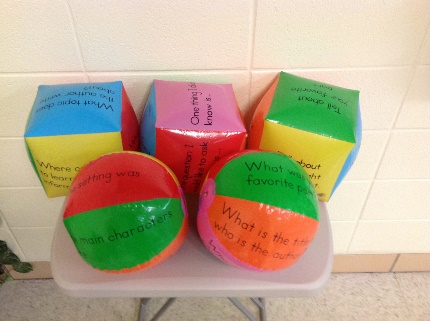 What topic does
the author write
about?
Where c
to learn
inform
One thing I
know is...
question I
to ask
Tell about
your favorite
about
setting was
main characters
What was
favorite
What is the title
who is the author